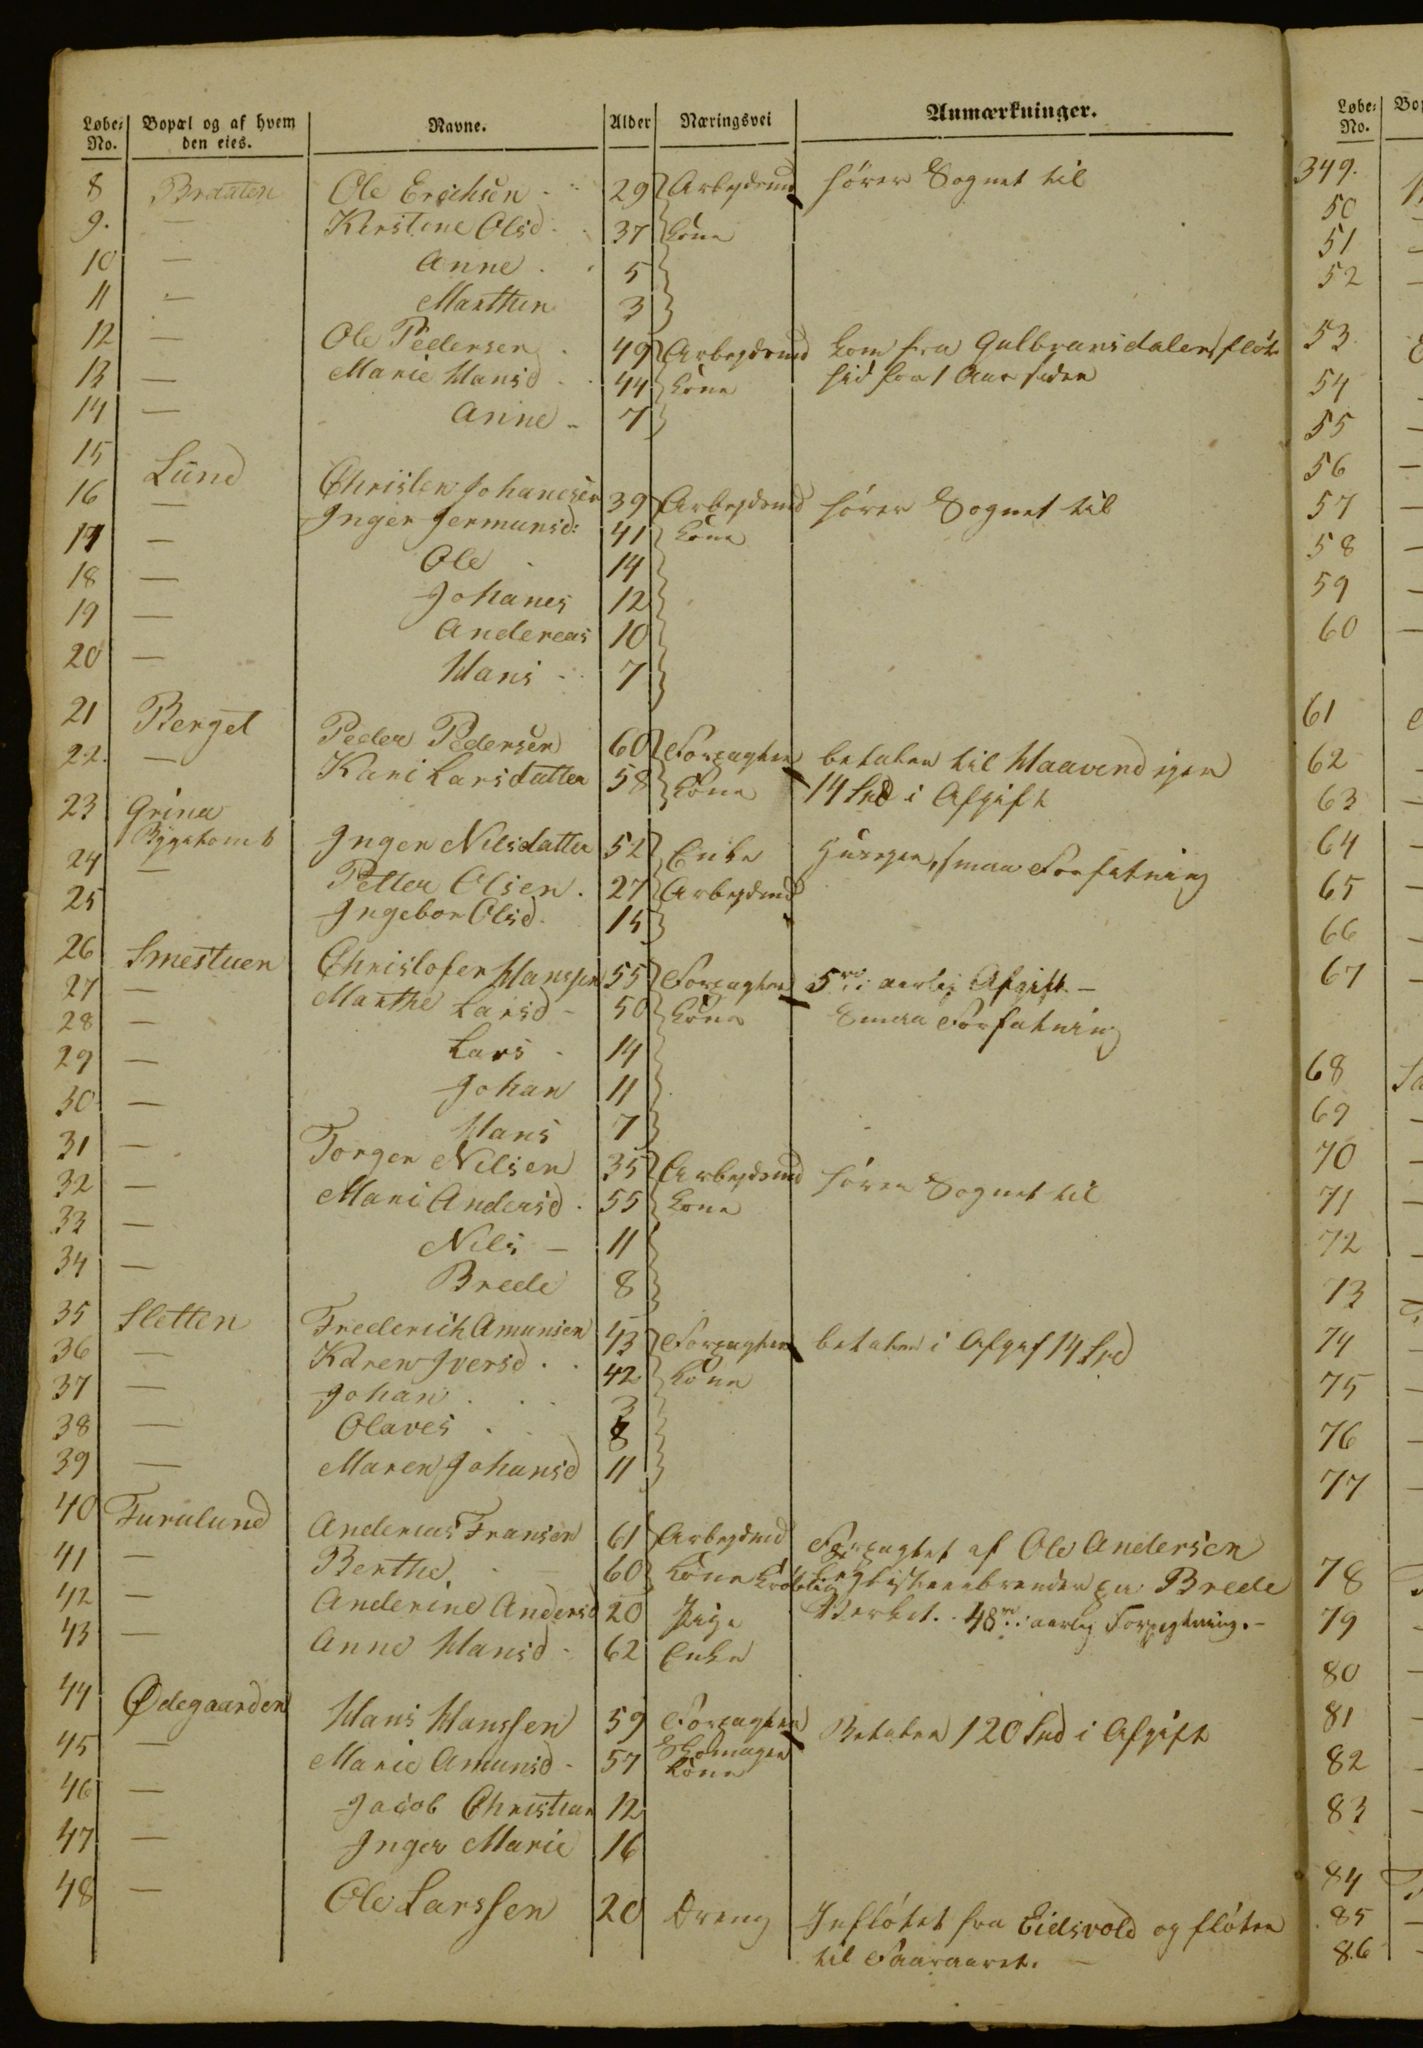 Løbe- No. | Bopæl og af hvem den eies. | Navne. | Alder | Næringsvei | Anmærkninger.
8 Brdaten Ole Erichsen 29 Arbejdsmd hører Sognet til
9. — Kirstine Olsd. 37 Kone
10 — Anne 5
11 — Marthen 3
12 — Ole Pedersen 49 Arbejdsmd kom fra Gulbransdalen, fløt
13 — Marie Hansd 44 Kone hid for 1 Aar siden
14 — Anne 7
15 Lund Christen Johanesen 39 Arbejdsmd hører Sognet til
16 — Inger Jermunsd: 41 Kone
17 — Ole 14
18 — Johanes 12
19 — Andereas 10
20 — Hans 7
21 Berget Peder Pedersen 60 Forpagter betaler til Haavend igen
22. — Kari Larsdatter 58 Kone 14 Spd i Afgift
23 Grina Inger Nilsdatter 52 Enke smaa Forfatning
24 — Petter Olsen 27 Arbejdsmd
25 Ingebor Olsd. 15
26 Smestuen Christofer Hanssen 55 Forpagter 5 i aarlig Afgift —
27 — Marthe Larsd — 50 Kone Smaa Forfatning
28 — Lars 14
29 — Johan 11
30 — Hans 7
31 — Torger Nilsen 35 Arbejdsmd hører Sognet til
32 — Mari Andersd. 55 Kone
33 — Nils — 11
34 — Brede 8
35 Sletten Frederich Amunsen 43 Forpagter betaler i Afgif 14 Spd
36 — Karen Iversd. 42 Kone
37 — Johan 3
38 — Olaves 8
39 — Maren Johansd 11
40 Furulund Andereas Fransen 61 Arbejdsmd Forpagtet af Ole Andersen
41 — Berthe 60 Kone Brede
42 — Anderine Andersd 20 Pige Verket. 48 i aarlig Forpagtning. —
43 — Anne Hansd — 62 Enke
44 Ødegaarden Hans Hanssen 59 Forpagter Betaler 120 Spd i Afgift
Skomager
45 — Marie Amunsd — 57 Kone
46 — Jacob Christian 12
47 — Inger Marie 16
48 — Ole Larssen 20 Dreng Infløtet fra Eidsvold og fløter
til Faaraaret. —
Løbe- No.
349.
50
51
52
53
54
55
56
57
58
59
60
61
62
63
64
65
66
67
68
69
70
71
72
73
74
75
76
77
78
79
80
81
82
83
84
85
86